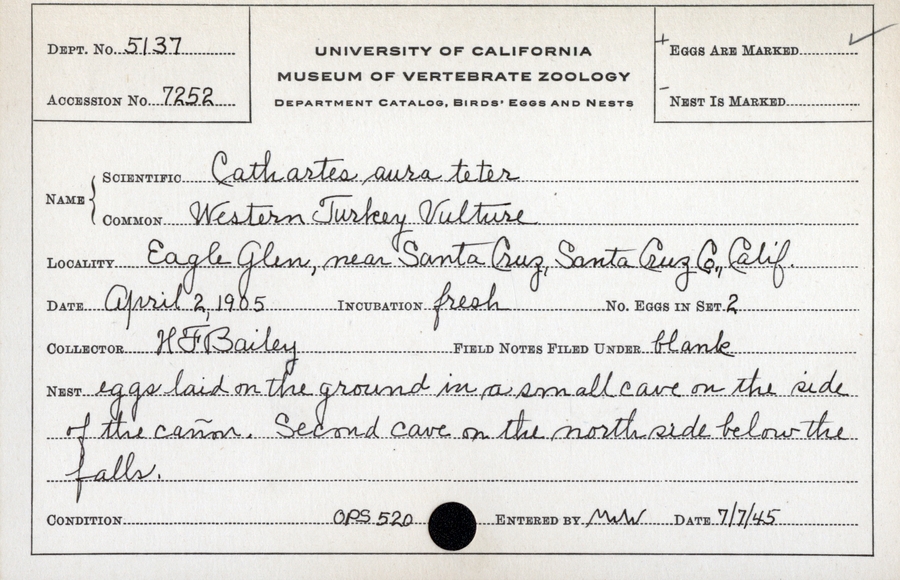 DEPT. NO. 5137
ACCESSION NO. 7252
UNIVERSITY OF CALIFORNIA
MUSEUM OF VERTEBRATE ZOOLOGY
DEPARTMENT CATALOG, BIRDS' EGGS AND NESTS
+ EGGS ARE MARKED ✓
- NEST IS MARKED
NAME { SCIENTIFIC Cathartes aura teter
COMMON Western Turkey Vulture
LOCALITY Eagle Glen, near Santa Cruz, Santa Cruz Co., Calif.
DATE April 2, 1905 INCUBATION fresh NO. EGGS IN SET 2
COLLECTOR H F Bailey FIELD NOTES FILED UNDER blank
NEST eggs laid on the ground in a small cave on the side
of the cañon. Second cave on the north side below the
falls.
CONDITION OPS 520 ENTERED BY MWW DATE 7/7/45